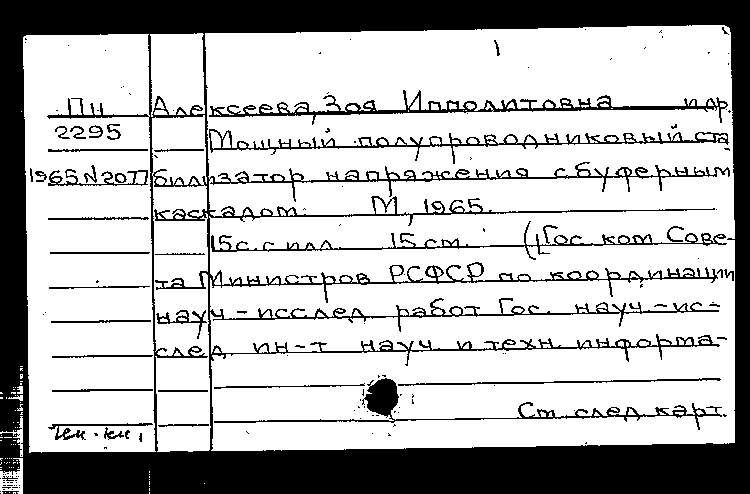 1
Пн Алексеева, Зоя Ипполитовна и др.
2295 Мощный полупроводниковый ста
1965 N 2077 билизатор напряжения с буферным
каскадом. М, 1965.
15 с. с илл. 15 см. ([Гос ком Сове-
та Министров РСФСР по координации
науч-исслед работ Гос. науч.-ис-
след. ин-т науч. и техн. информа-
См след карт.